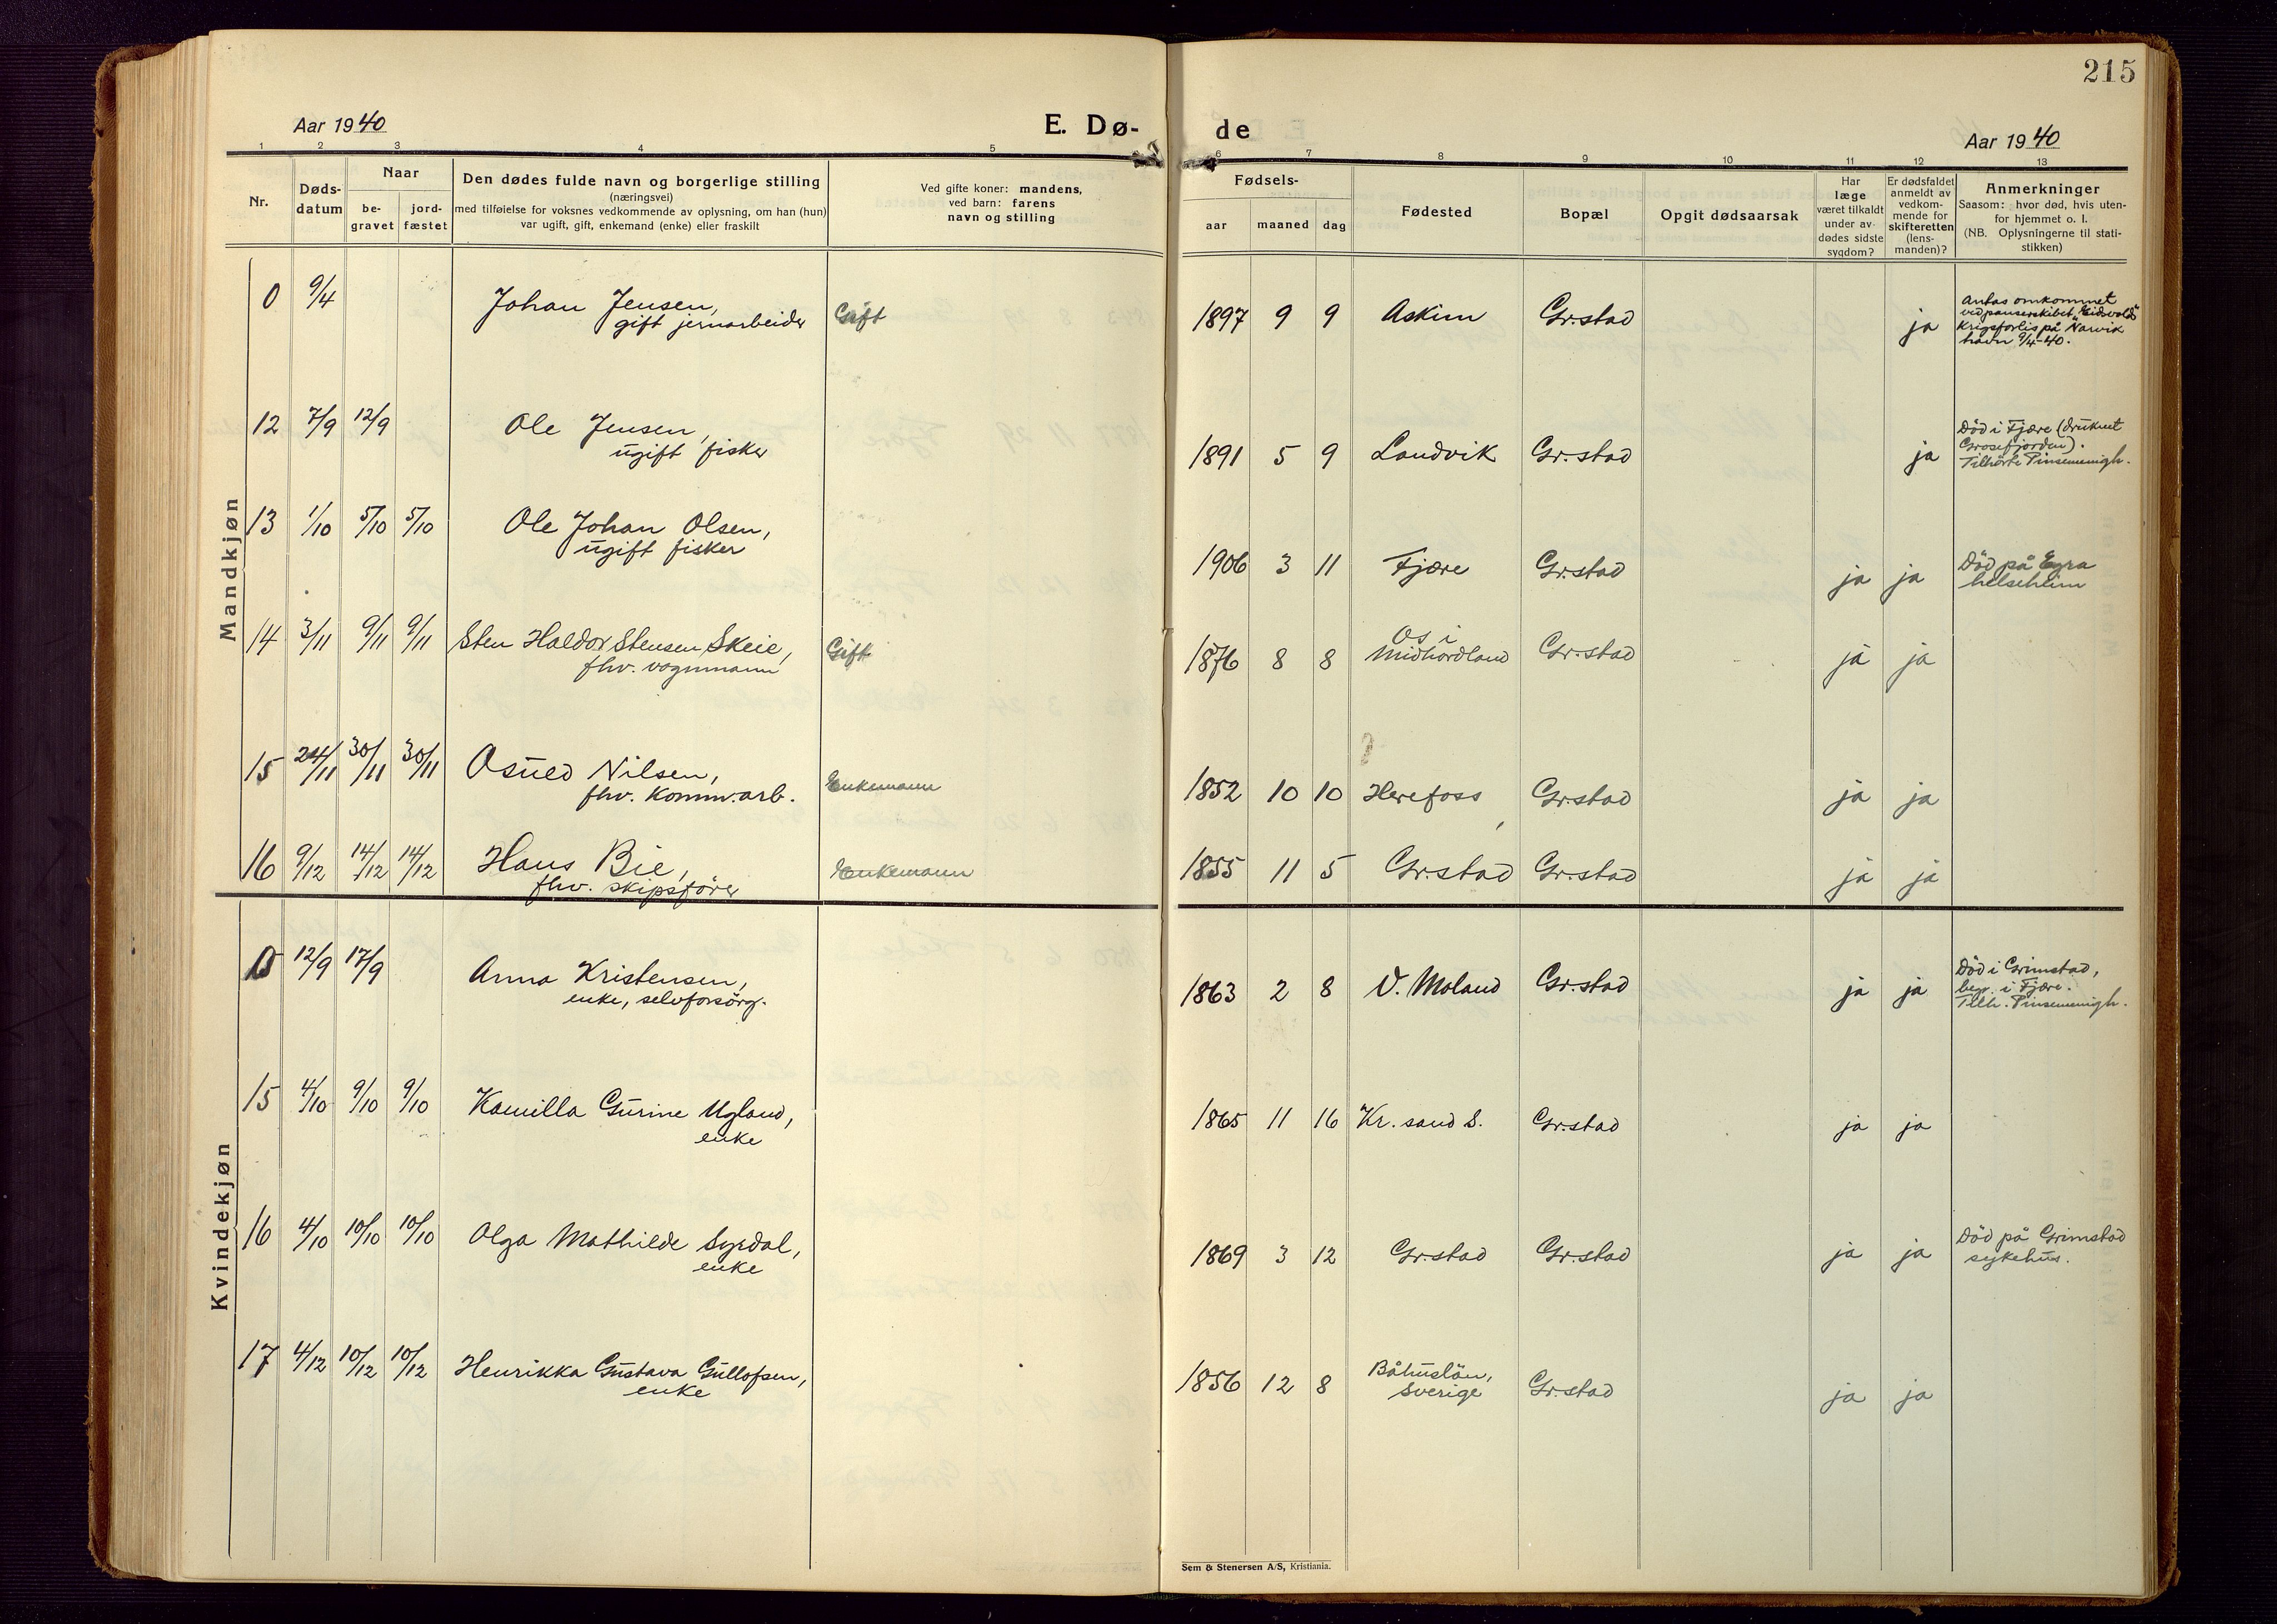 215
Aar 1940
E. Dø-
de
Aar 1940
1 2 3 4 5 6 7 8 9 10 11 12 13
Nr.
Døds-
datum
Naar
be-
gravet
jord-
fæstet
Den dødes fulde navn og borgerlige stilling
(næringsvei)
med tilføielse for voksnes vedkommende av oplysning, om han (hun)
var ugift, gift, enkemand (enke) eller fraskilt
Ved gifte koner: mandens,
ved barn: farens
navn og stilling
Fødsels-
aar maaned dag
Fødested
Bopæl
Opgit dødsaarsak
Har
læge
været tilkaldt
under av-
dødes sidste
sygdom?
Er dødsfaldet
anmeldt av
vedkom-
mende for
skifteretten
(lens-
manden)?
Anmerkninger
Saasom: hvor død, hvis uten-
for hjemmet o. l.
(NB. Oplysningerne til stati-
stikken)
Mandkjøn
0 9/4 Johan Jensen, Gift 1897 9 9 Askim Gr.stad ja
gift jernarbeider
Antas omkommet
ved panserskibet "Eidsvold"s
krigsforlis på Narvik
havn 9/4-40.
12 7/9 12/9 Ole Jensen, 1891 5 9 Landvik Gr.stad ja
ugift fisker
Död i Fjære (druknet
Grosefjorden).
Tilhörte Pinsemenigh.
13 1/10 5/10 5/10 Ole Johan Olsen, 1906 3 11 Fjære Gr.stad ja ja
ugift fisker
Död på Eyra
helseheim
14 3/11 9/11 9/11 Sten Haldor Stensen Skeie, Gift 1876 8 8 Os i
Midhordland Gr.stad ja ja
fhv. vognmann
15 24/11 30/11 30/11 Osued Nilsen, Enkemann 1852 10 10 Herefoss Gr.stad ja ja
fhv. komm.arb.
16 9/12 14/12 14/12 Hans Bie, Enkemann 1855 11 5 Gr.stad Gr.stad ja ja
fhv. skipsförer
Kvindekjøn
0 12/9 17/9 Anna Kristensen, 1863 2 8 V. Moland Gr.stad ja ja
enke, selvforsörg.
Död i Grimstad,
begr. i Fjære.
Tilh. Pinsemenigh.
15 4/10 9/10 9/10 Kamilla Gurine Ugland, 1865 11 16 Kr. sand S. Gr.stad ja ja
enke
16 4/10 10/10 10/10 Olga Mathilde Syrdal, 1869 3 12 Gr.stad Gr.stad ja ja
enke
Död på Grimstad
sykehus.
17 4/12 10/12 10/12 Henrikka Gustava Gullofsen, 1856 12 8 Båhuslän,
Sverige Gr.stad ja ja
enke
Sem & Stenersen A/S, Kristiania.